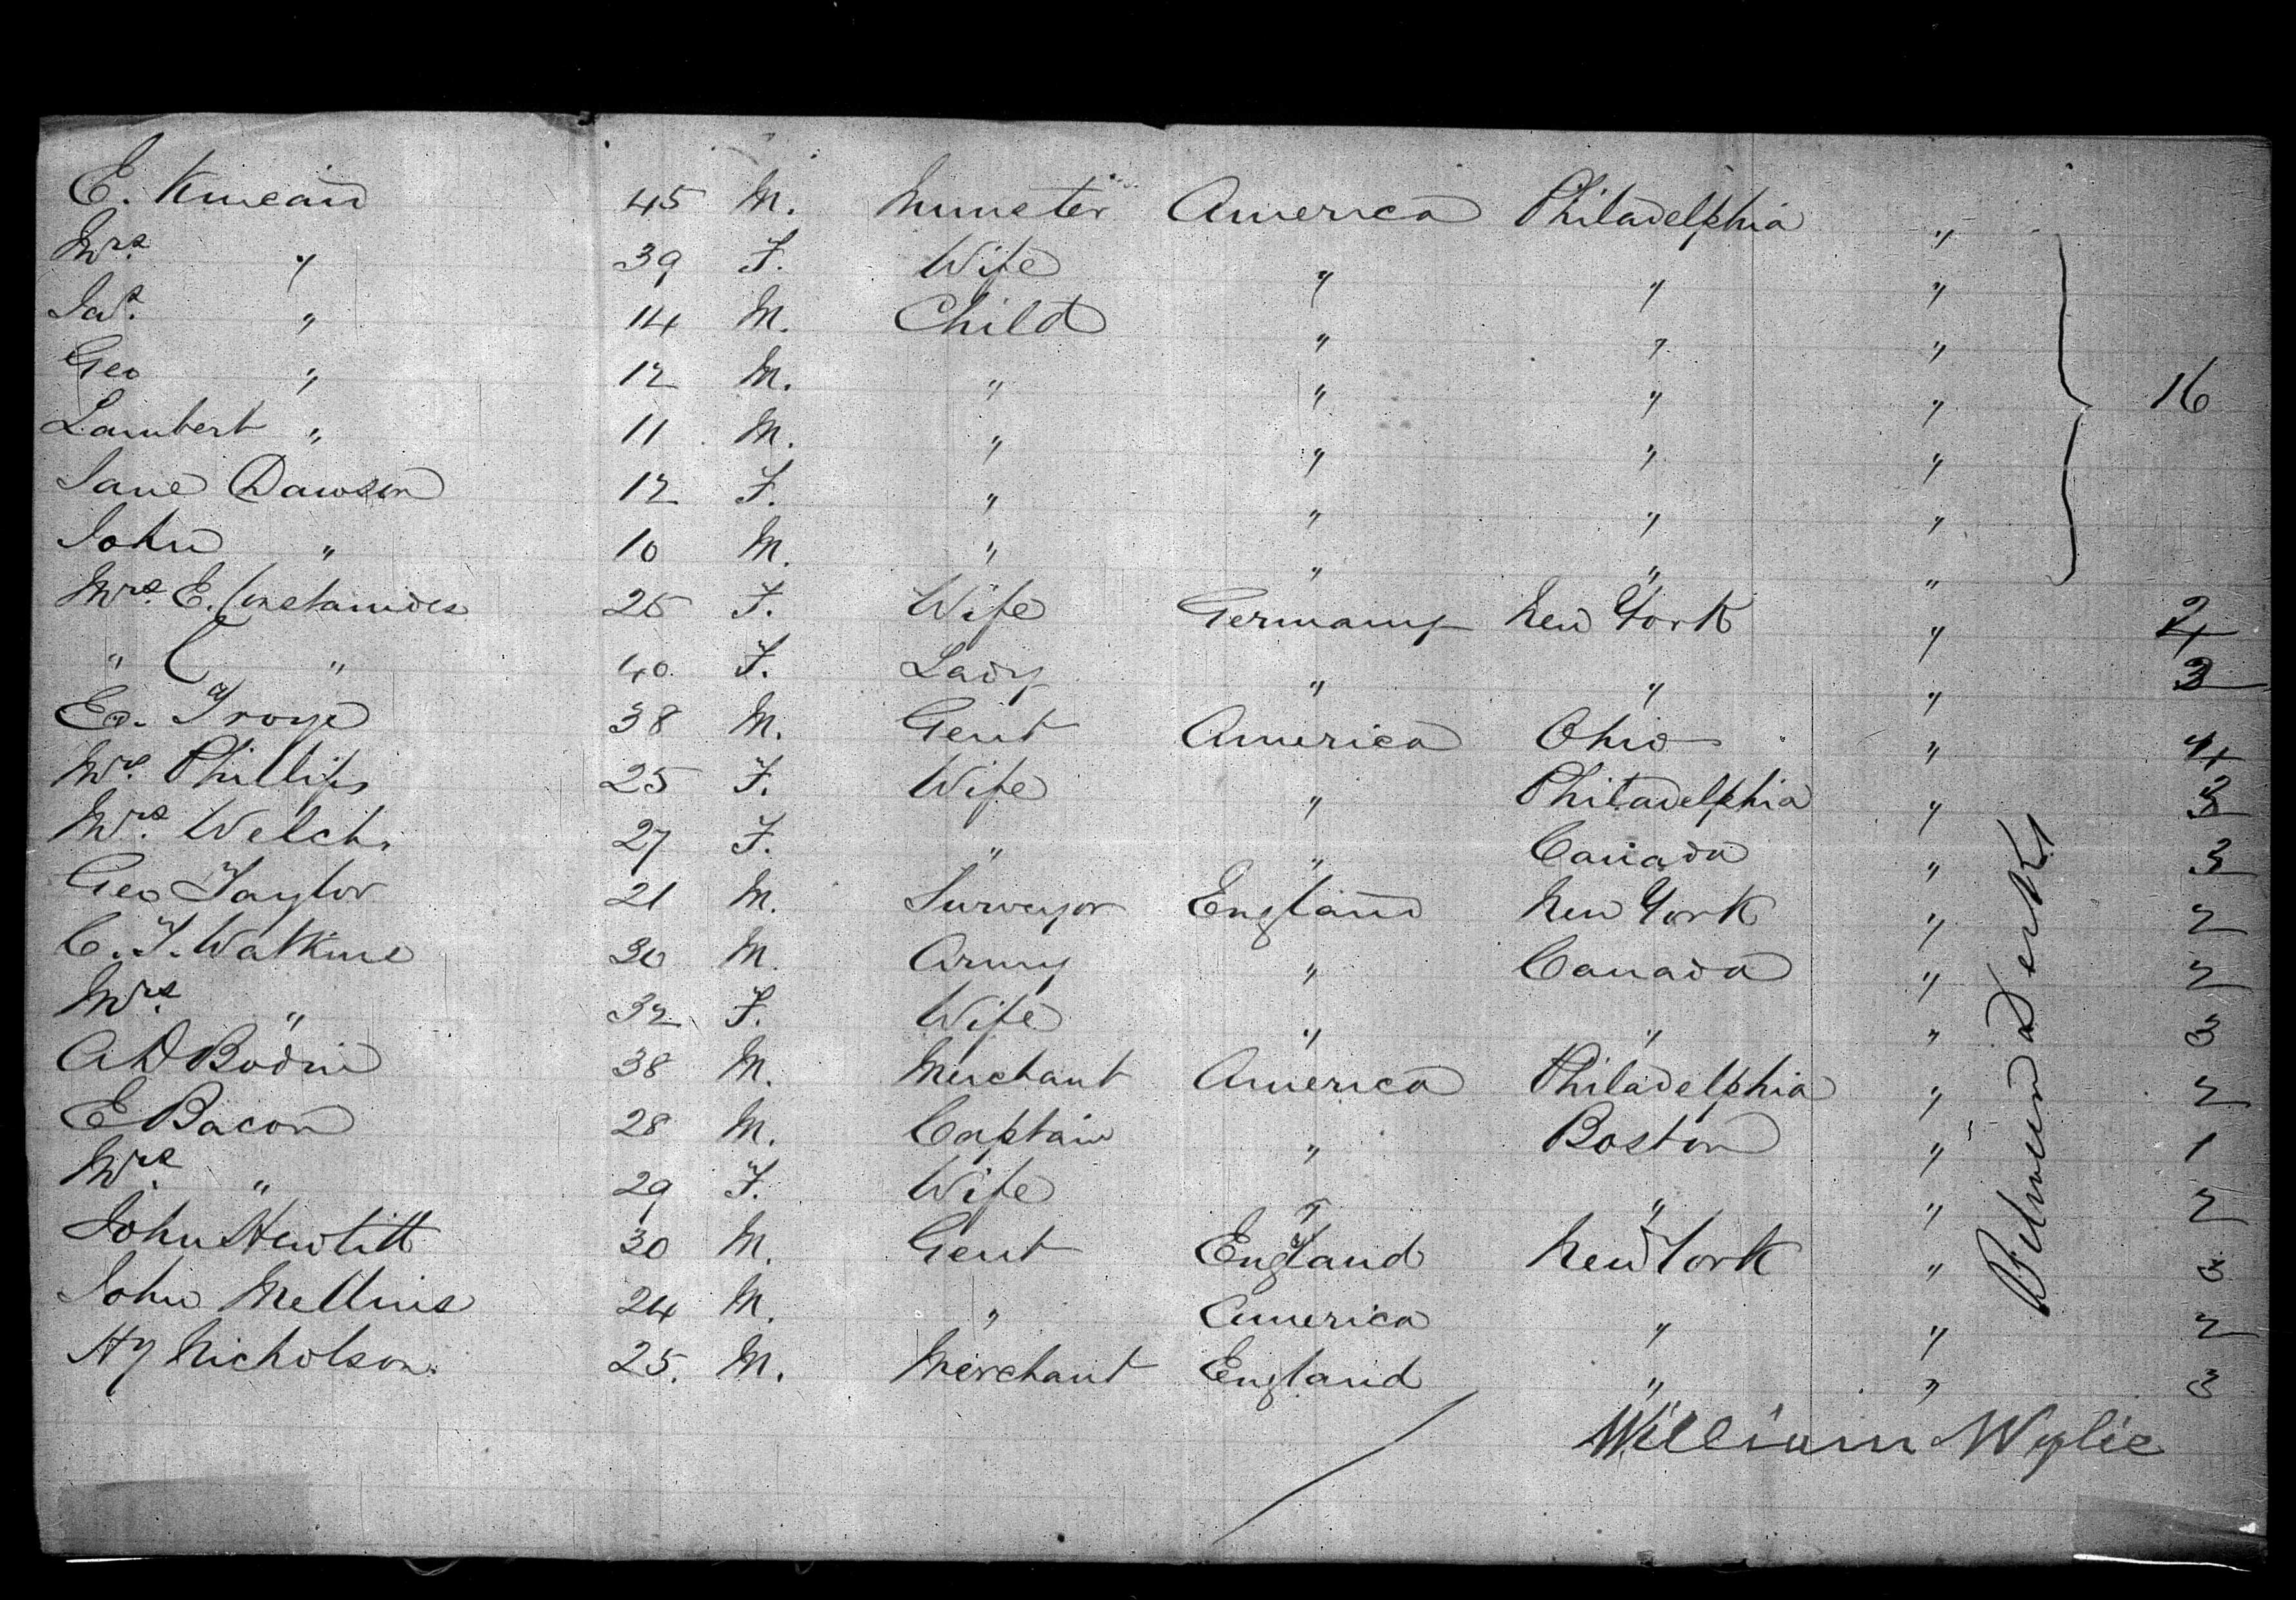 E. Kincaid 45 M. Minister America Philadelphia "
Mrs. " 39 F. Wife " " "
Jas. " 14 M. Child " " "
Geo " 12 M. " " " " 16
Lambert " 11 M. " " " "
Jane Dawson 12 F. " " " "
John " 10 M. " " " "
Mrs. E. 26 F. Wife Germany New York " 2
" C " 40 F. Lady " " " 3
Ed. Troye 38 M. Gent America Ohio " 4
Mrs. Phillips 25 F. Wife " Philadelphia " 3
Mrs. Welch 27 F. " " Canada " 3
Geo Taylor 21 M. Surveyor England New York " 2
C. T. Watkins 30 M. Army " Canada " 2
Mrs. " 32 F. Wife " " " 3
A D Bodin 38 M. Merchant America Philadelphia " 2
E Bacon 28 M. Captain " Boston " 1
Mrs " 29 F. Wife " " " 2
John Hewlitt 30 M. Gent England New York " 3
John 24 M. " America " " 2
Hy Nicholson 25. M. Merchant England " " 3
Between Decks
William Wylie